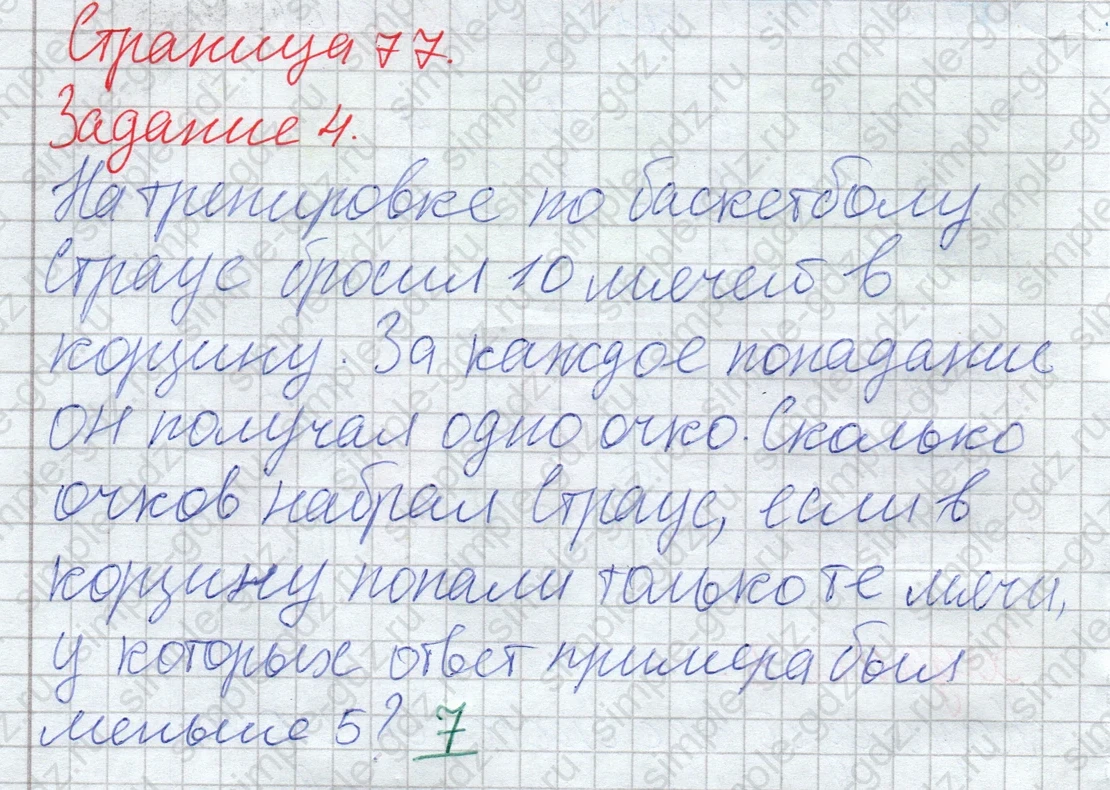 Страница 77.
Задание 4.
На тренировке по баскетболу
Страус бросил 10 мячей в
корзину. За каждое попадание
он получал одно очко. Сколько
очков набрал Страус, если в
корзину попали только те мячи,
у которых ответ примера был
меньше 5? 7